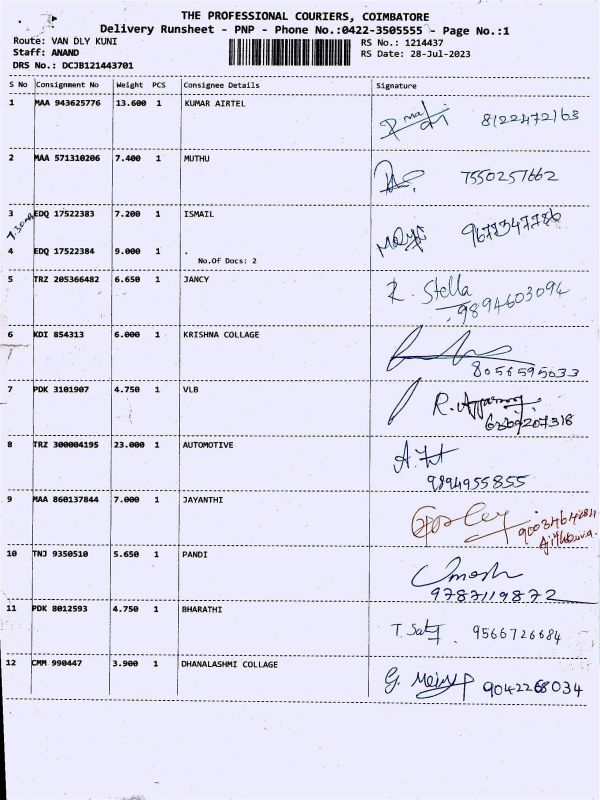 THE PROFESSIONAL COURIERS, COIMBATORE
Delivery Runsheet - PNP - Phone No.:0422-3505555 - Page No.:1
Route: VAN DLY KUNI
RS No.: 1214437
Staff: ANAND
RS Date: 28-Jul-2023
DRS No.: DCJB121443701
S No Consignment No Weight PCS Consignee Details Signature
1 MAA 943625776 13.600 1 KUMAR AIRTEL 8122472163
2 MAA 571310206 7.400 1 MUTHU 7550257662
3 EDQ 17522383 7.200 1 ISMAIL
4 EDQ 17522384 9.000 1 .
No.Of Docs: 2
5 TRZ 205366482 6.650 1 JANCY R. Stella
9894603094
6 KDI 854313 6.000 1 KRISHNA COLLAGE
8056595033
7 PDK 3101907 4.750 1 VLB
6369207318
8 TRZ 300004195 23.000 1 AUTOMOTIVE
9894955855
9 MAA 860137844 7.000 1 JAYANTHI
10 TNJ 9350510 5.650 1 PANDI
9787119872
11 PDK 8012593 4.750 1 BHARATHI 9566726684
12 CMM 990447 3.900 1 DHANALASHMI COLLAGE 9042268034